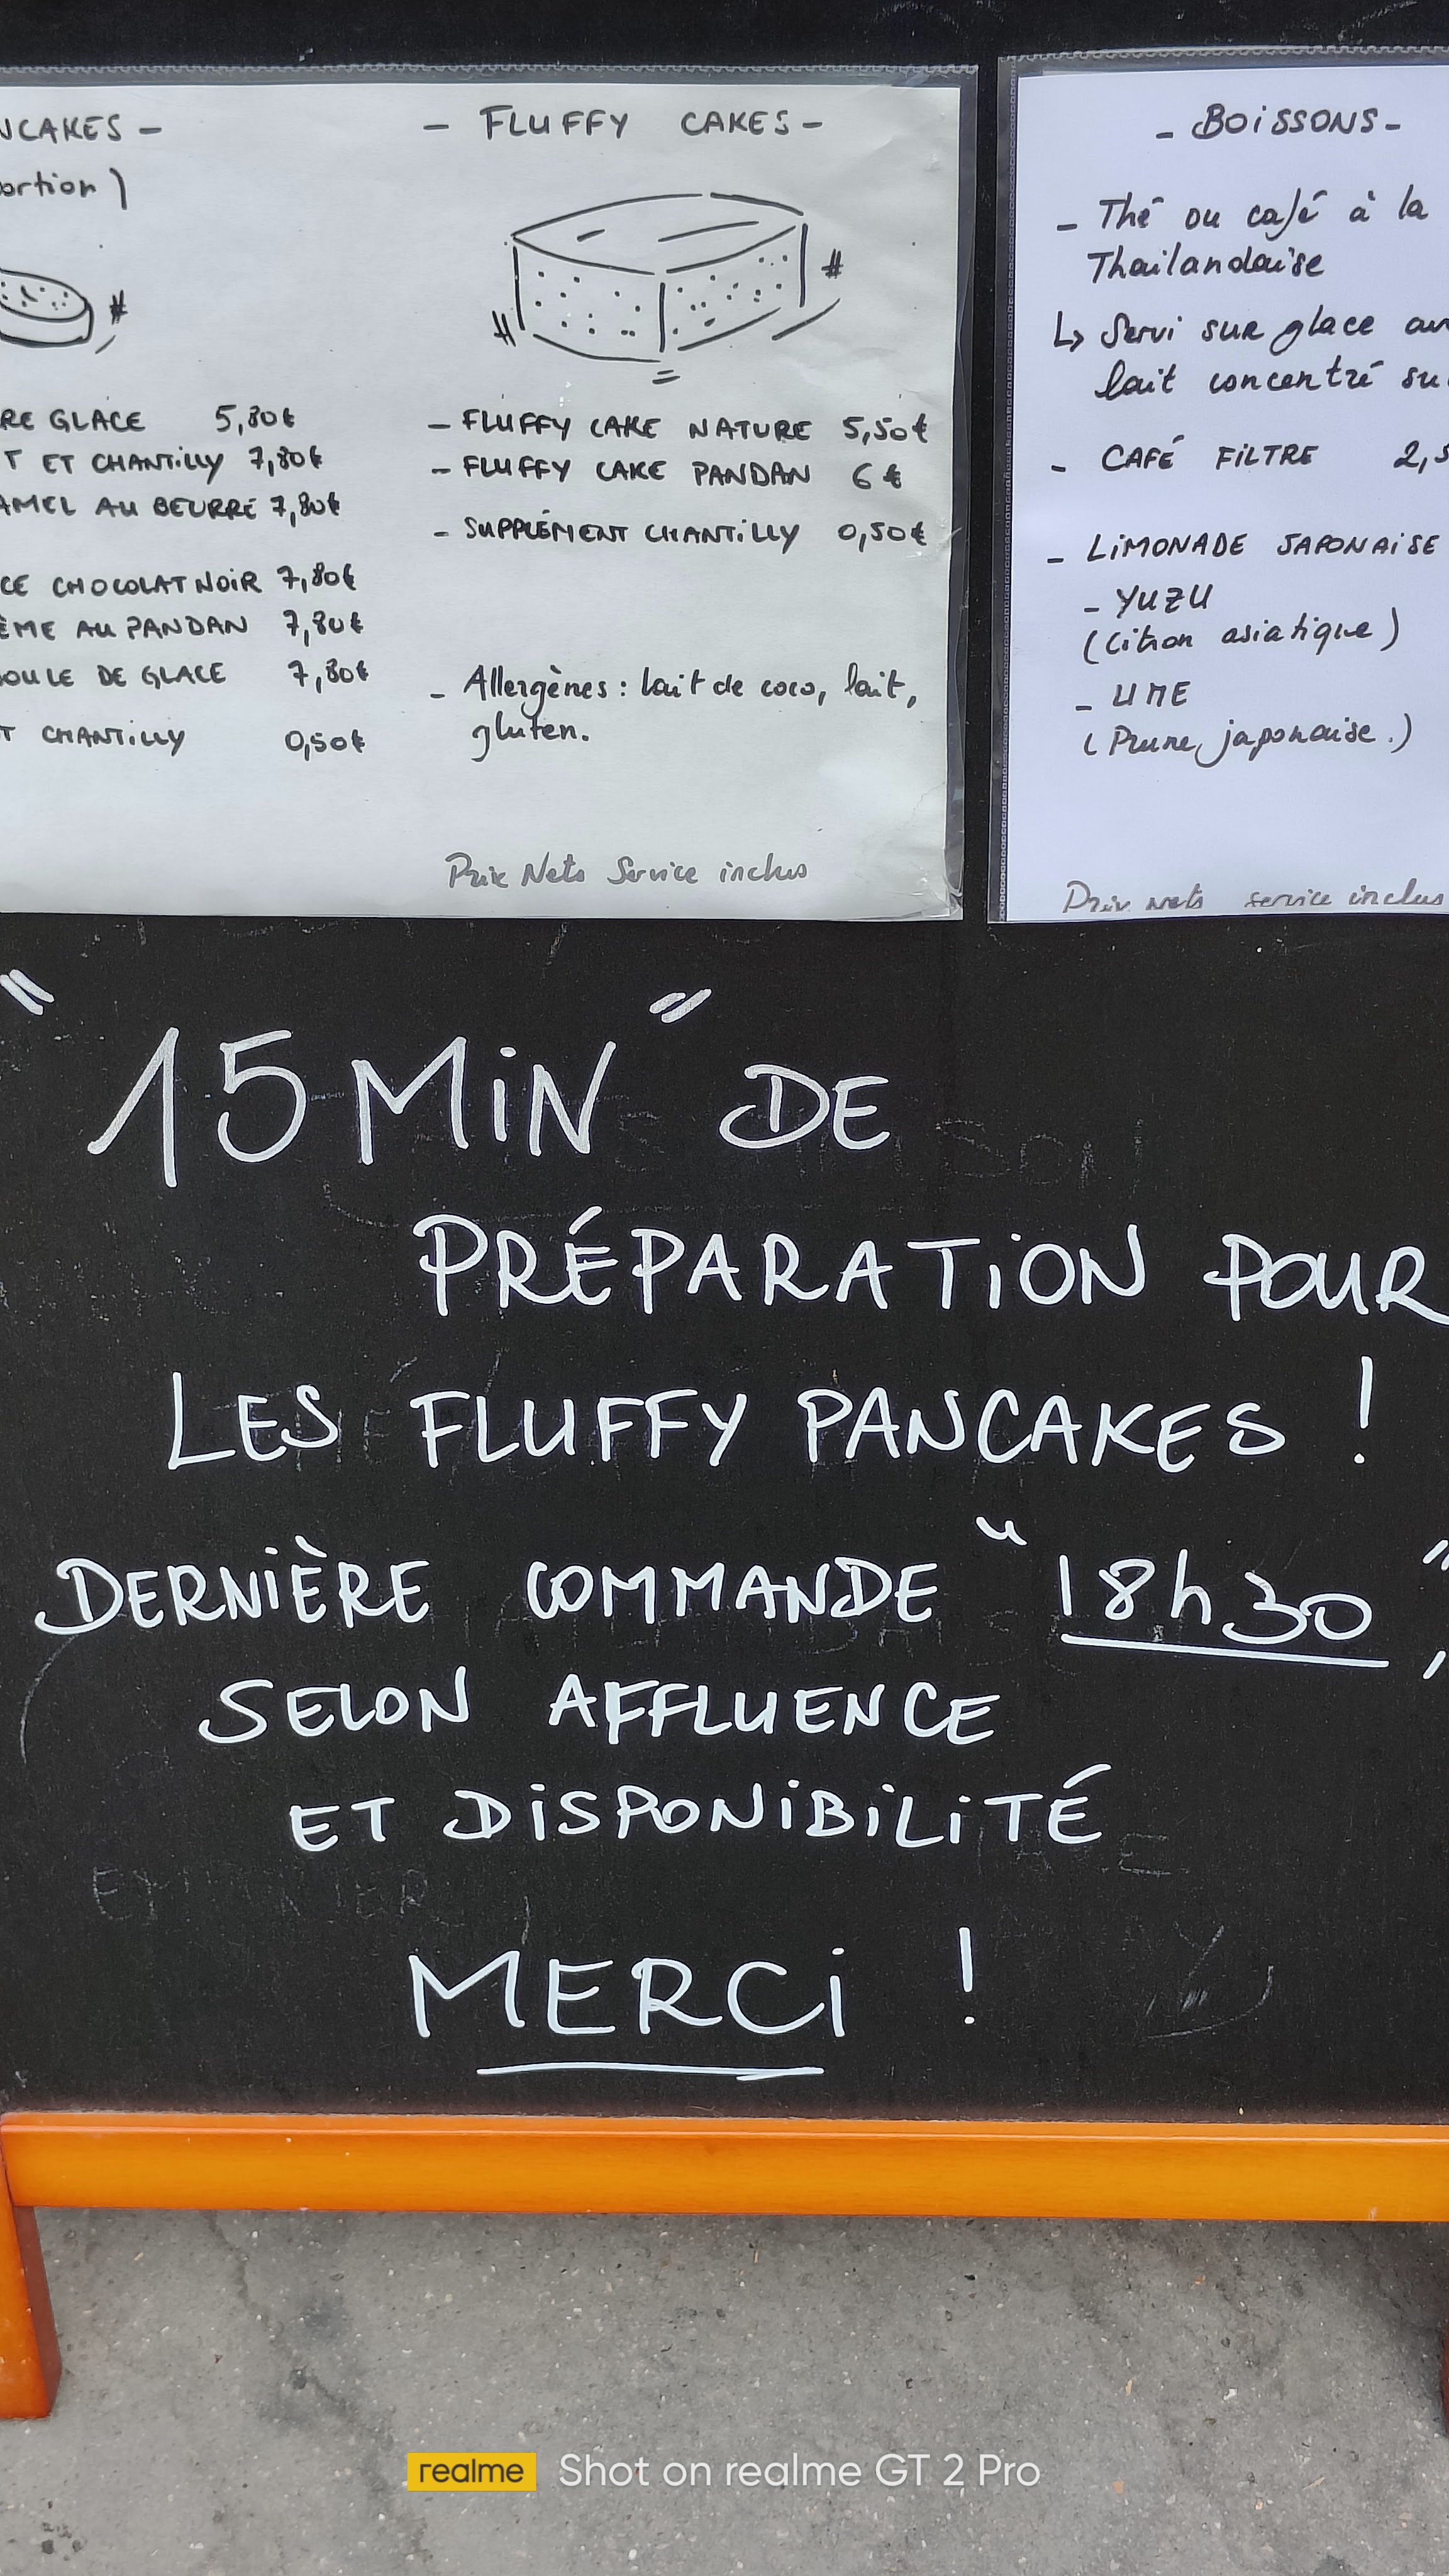 NCAKES -
ortion)
RE GLACE 5,80€
T ET CHANTILLY 7,80€
AMEL AU BEURRE 7,80€
CE CHOCOLAT NOIR 7,80€
ÈME AU PANDAN 7,80€
OULE DE GLACE 7,80€
T CHANTILLY 0,50€
- FLUFFY CAKES -
- FLUFFY CAKE NATURE 5,50€
- FLUFFY CAKE PANDAN 6€
- SUPPLÉMENT CHANTILLY 0,50€
- Allergènes : lait de coco, lait,
gluten.
Prix Nets Service inclus
- BOISSONS -
- Thé ou café à la
Thailandaise
↳ Servi sur glace av
lait concentré su
- CAFÉ FILTRE 2,5
- LIMONADE JAPONAISE
- YUZU
(Citron asiatique)
- UME
(Prune japonaise.)
Prix nets service inclus
"15 MIN" DE
PRÉPARATION POUR
LES FLUFFY PANCAKES !
DERNIÈRE COMMANDE "18h30",
SELON AFFLUENCE
ET DISPONIBILITÉ
MERCI !
realme Shot on realme GT 2 Pro